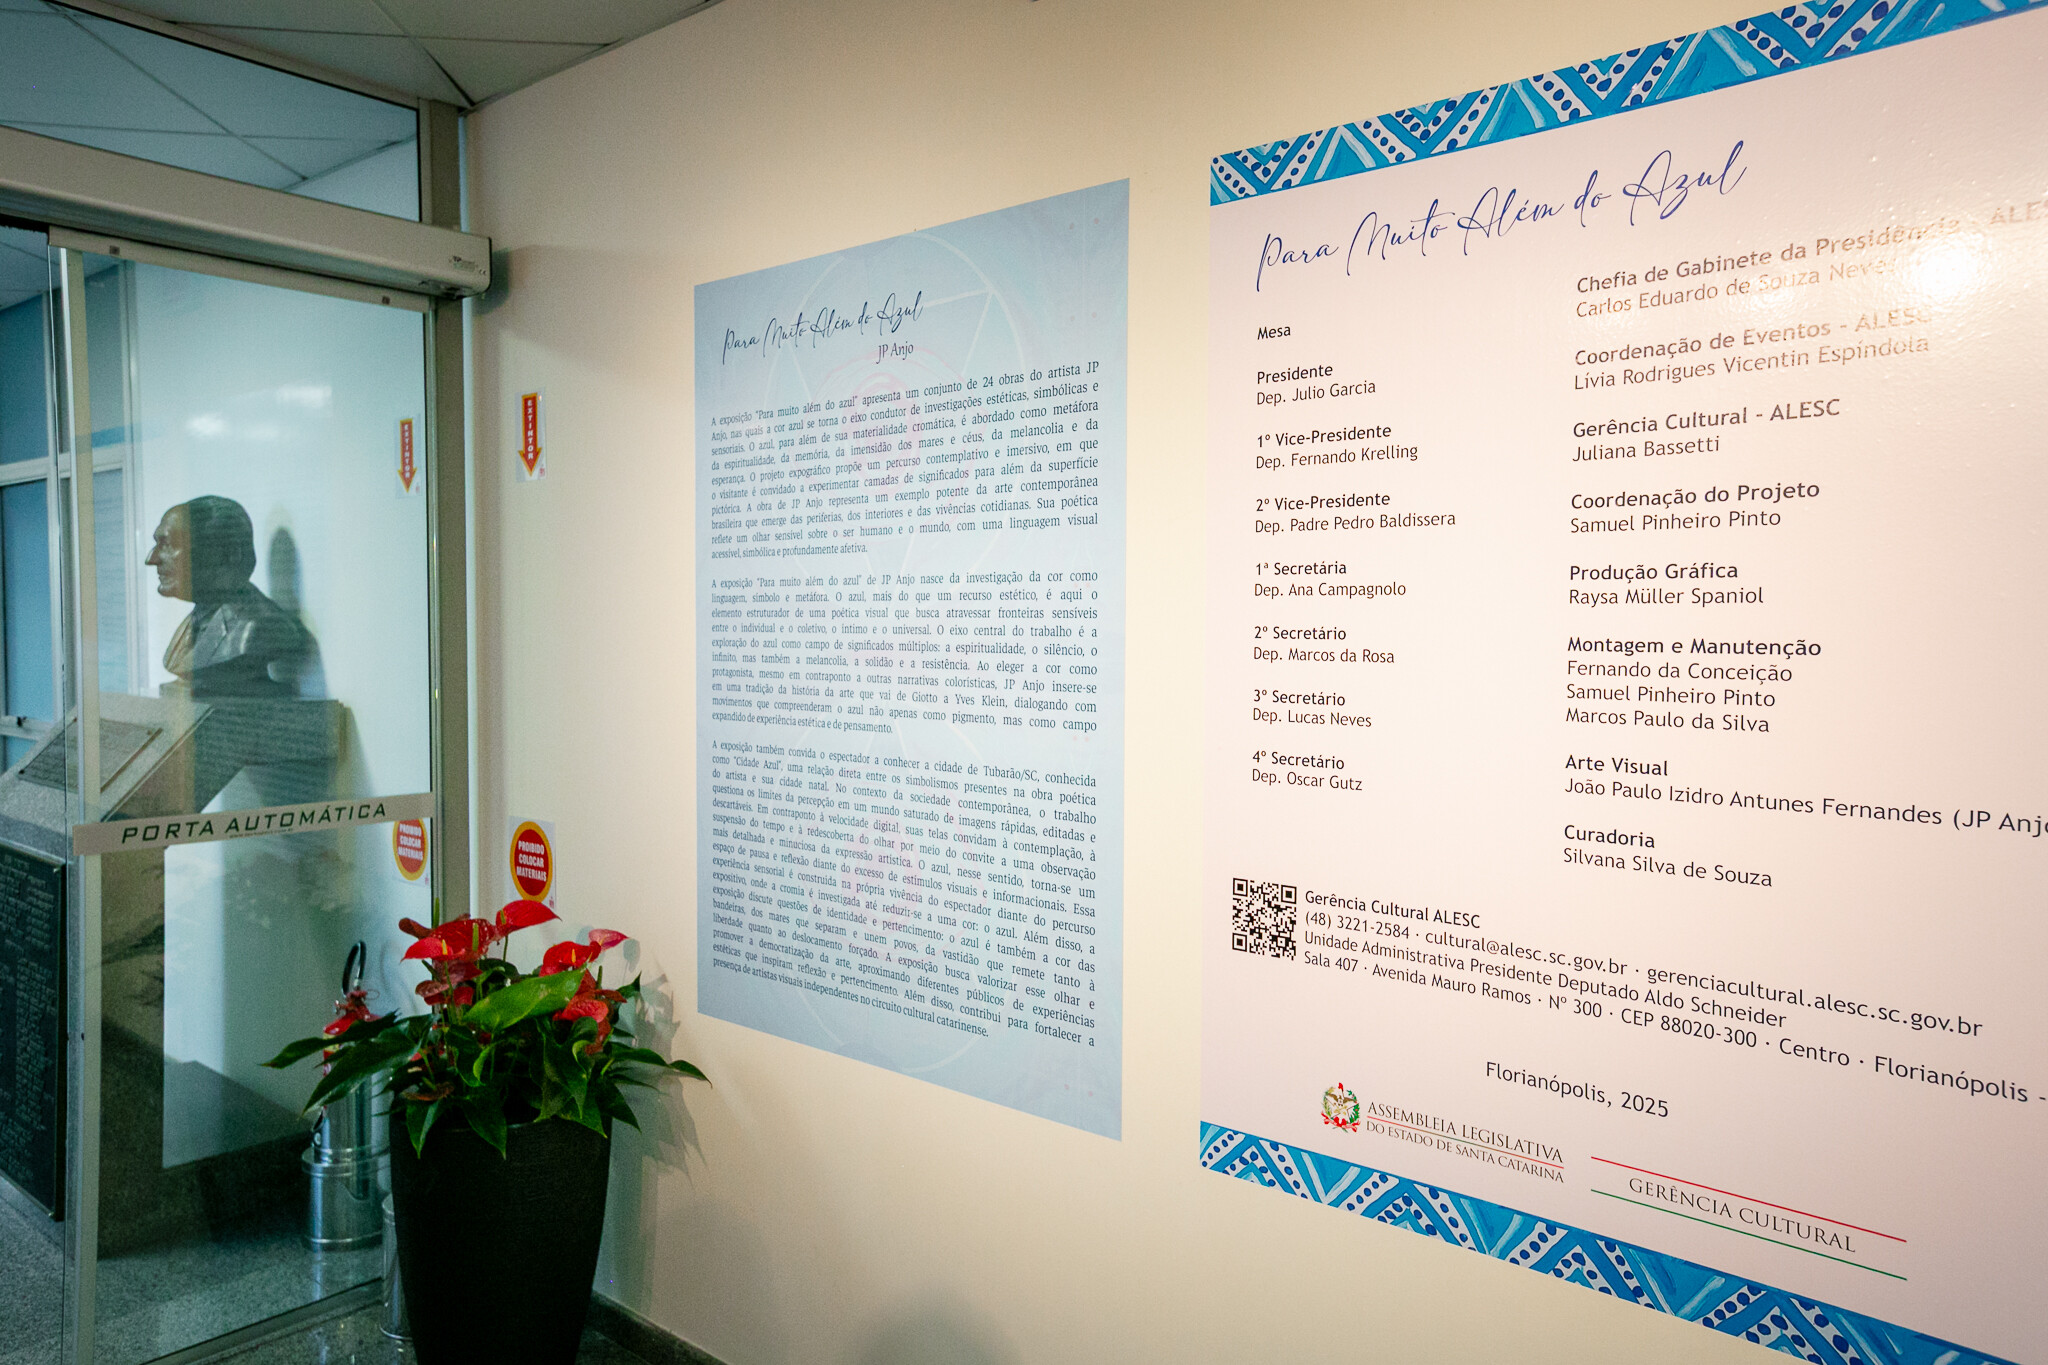 EXTINTOR
EXTINTOR
PORTA AUTOMÁTICA
PROIBIDO
COLOCAR
MATERIAIS
PROIBIDO
COLOCAR
MATERIAIS
Para Muito Além do Azul
JP Anjo
A exposição "Para muito além do azul" apresenta um conjunto de 24 obras do artista JP
Anjo, nas quais a cor azul se torna o eixo condutor de investigações estéticas, simbólicas e
sensoriais. O azul, para além de sua materialidade cromática, é abordado como metáfora
da espiritualidade, da memória, da imensidão dos mares e céus, da melancolia e da
esperança. O projeto expográfico propõe um percurso contemplativo e imersivo, em que
o visitante é convidado a experimentar camadas de significados para além da superfície
pictórica. A obra de JP Anjo representa um exemplo potente da arte contemporânea
brasileira que emerge das periferias, dos interiores e das vivências cotidianas. Sua poética
reflete um olhar sensível sobre o ser humano e o mundo, com uma linguagem visual
acessível, simbólica e profundamente afetiva.
A exposição "Para muito além do azul" de JP Anjo nasce da investigação da cor como
linguagem, símbolo e metáfora. O azul, mais do que um recurso estético, é aqui o
elemento estruturador de uma poética visual que busca atravessar fronteiras sensíveis
entre o individual e o coletivo, o íntimo e o universal. O eixo central do trabalho é a
exploração do azul como campo de significados múltiplos: a espiritualidade, o silêncio, o
infinito, mas também a melancolia, a solidão e a resistência. Ao eleger a cor como
protagonista, mesmo em contraponto a outras narrativas colorísticas, JP Anjo insere-se
em uma tradição da história da arte que vai de Giotto a Yves Klein, dialogando com
movimentos que compreenderam o azul não apenas como pigmento, mas como campo
expandido de experiência estética e de pensamento.
A exposição também convida o espectador a conhecer a cidade de Tubarão/SC, conhecida
como "Cidade Azul", uma relação direta entre os simbolismos presentes na obra poética
do artista e sua cidade natal. No contexto da sociedade contemporânea, o trabalho
questiona os limites da percepção em um mundo saturado de imagens rápidas, editadas e
descartáveis. Em contraponto à velocidade digital, suas telas convidam à contemplação, à
suspensão do tempo e à redescoberta do olhar por meio do convite a uma observação
mais detalhada e minuciosa da expressão artística. O azul, nesse sentido, torna-se um
espaço de pausa e reflexão diante do excesso de estímulos visuais e informacionais. Essa
experiência sensorial é construída na própria vivência do espectador diante do percurso
expositivo, onde a cromia é investigada até reduzir-se a uma cor: o azul. Além disso, a
exposição discute questões de identidade e pertencimento: o azul é também a cor das
bandeiras, dos mares que separam e unem povos, da vastidão que remete tanto à
liberdade quanto ao deslocamento forçado. A exposição busca valorizar esse olhar e
promover a democratização da arte, aproximando diferentes públicos de experiências
estéticas que inspiram reflexão e pertencimento. Além disso, contribui para fortalecer a
presença de artistas visuais independentes no circuito cultural catarinense.
Para Muito Além do Azul
Mesa
Presidente
Dep. Julio Garcia
1º Vice-Presidente
Dep. Fernando Krelling
2º Vice-Presidente
Dep. Padre Pedro Baldissera
1ª Secretária
Dep. Ana Campagnolo
2º Secretário
Dep. Marcos da Rosa
3º Secretário
Dep. Lucas Neves
4º Secretário
Dep. Oscar Gutz
Chefia de Gabinete da Presidência - ALESC
Carlos Eduardo de Souza Neves
Coordenação de Eventos - ALESC
Lívia Rodrigues Vicentin Espíndola
Gerência Cultural - ALESC
Juliana Bassetti
Coordenação do Projeto
Samuel Pinheiro Pinto
Produção Gráfica
Raysa Müller Spaniol
Montagem e Manutenção
Fernando da Conceição
Samuel Pinheiro Pinto
Marcos Paulo da Silva
Arte Visual
João Paulo Izidro Antunes Fernandes (JP Anjo
Curadoria
Silvana Silva de Souza
Gerência Cultural ALESC
(48) 3221-2584 · cultural@alesc.sc.gov.br · gerenciacultural.alesc.sc.gov.br
Unidade Administrativa Presidente Deputado Aldo Schneider
Sala 407 · Avenida Mauro Ramos · Nº 300 · CEP 88020-300 · Centro · Florianópolis -
Florianópolis, 2025
ASSEMBLEIA LEGISLATIVA
DO ESTADO DE SANTA CATARINA
GERÊNCIA CULTURAL